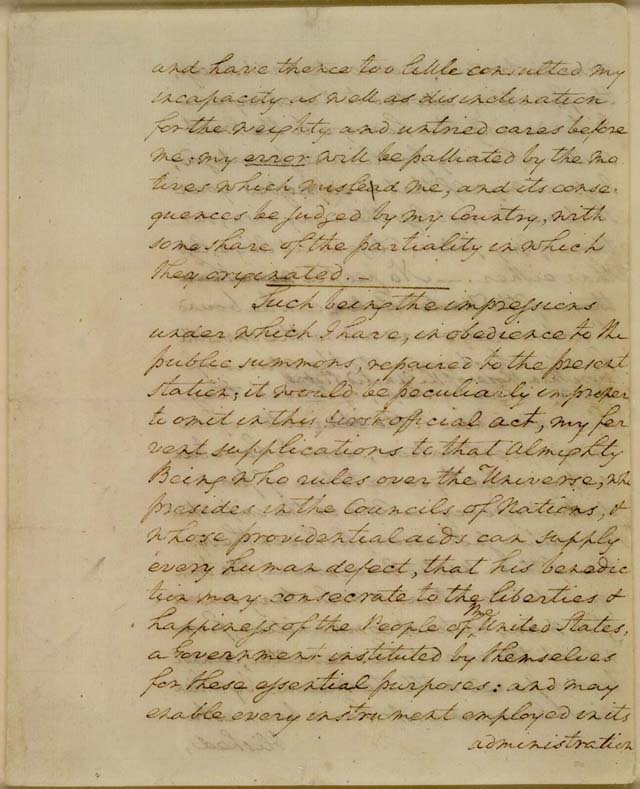 and have thence too little consulted my
incapacity as well as disinclination
for the weighty and untried cares before
me; my error will be palliated by the mo
tives which mislead me, and its conse-
quences be judged by my Country, with
some share of the partiality in which
they originated. –
Such being the impressions
under which I have, in obedience to the
public summons, repaired to the present
station; it would be peculiarly improper
to omit in this first official act, my fer
vent supplications to that Almighty
Being who rules over the Universe, who
presides in the Councils of Nations, &
whose providential aids can supply
every human defect, that his benedic
tion may consecrate to the liberties &
happiness of the People of the United States,
a Government instituted by themselves
for these essential purposes: and may
enable every instrument employed in its
administration